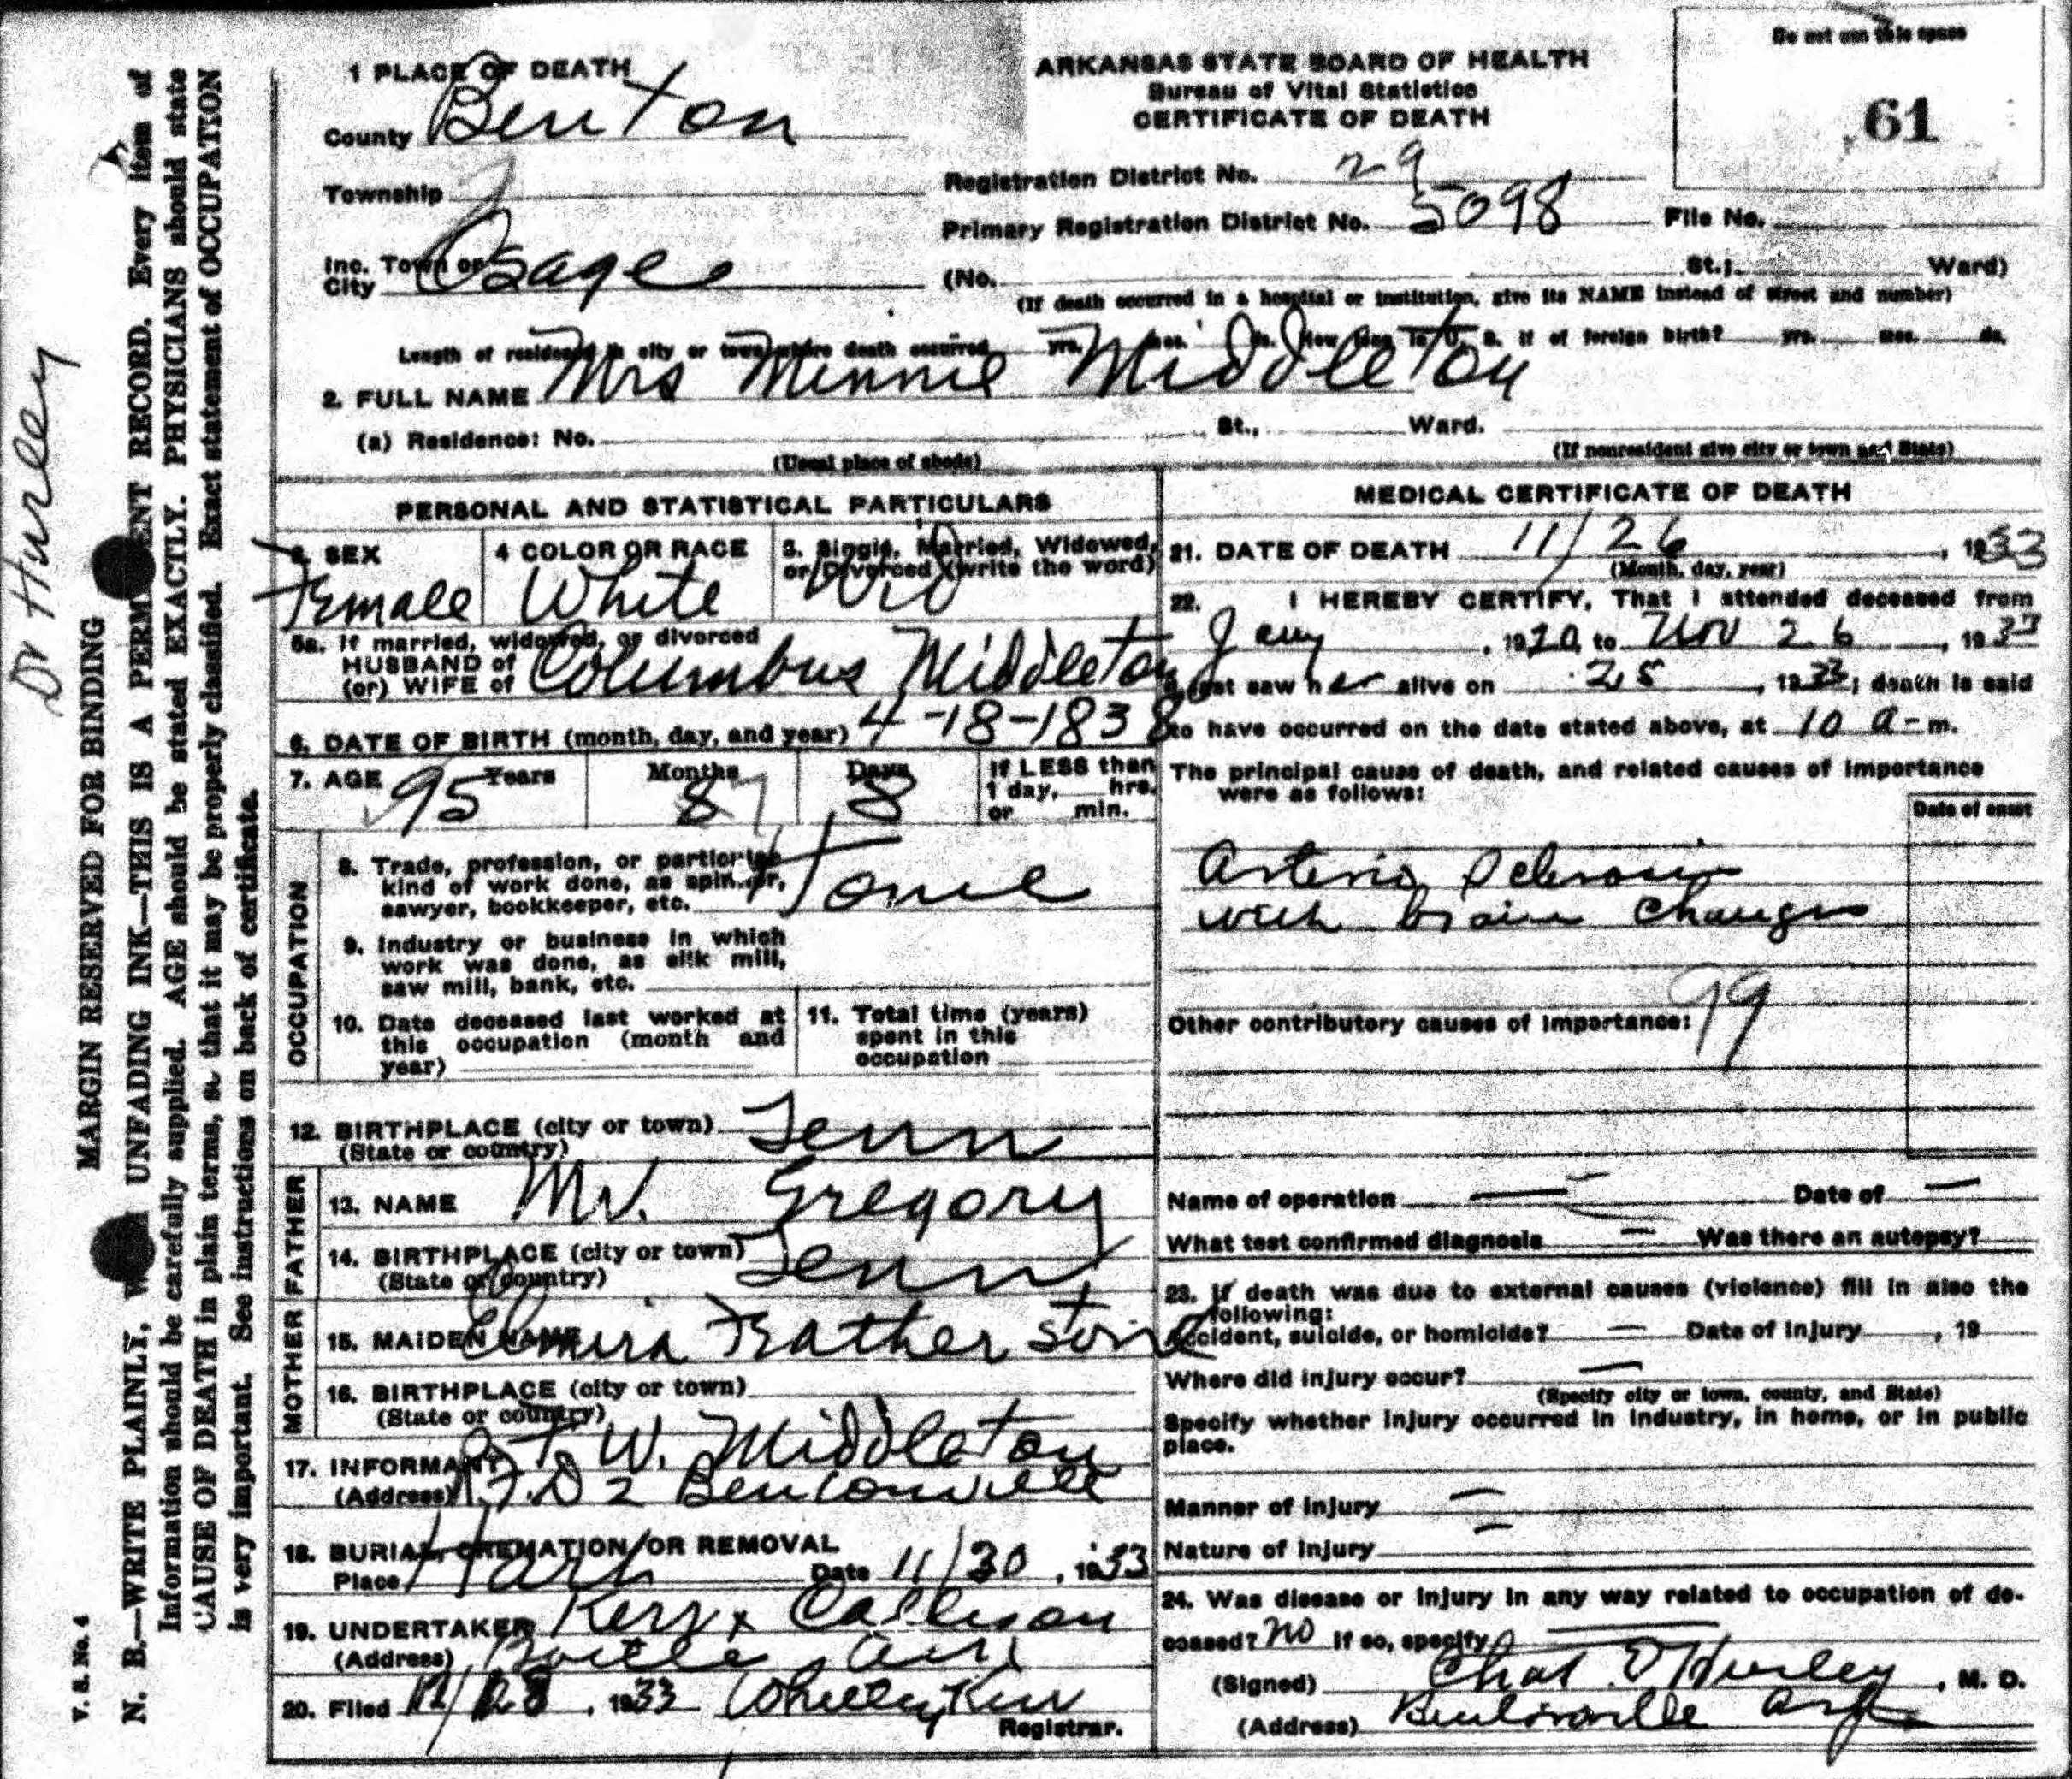 Do not use this space
61
ARKANSAS STATE BOARD OF HEALTH
Bureau of Vital Statistics
CERTIFICATE OF DEATH
1 PLACE OF DEATH
County Benton
Township
Inc. Town or City Osage
Registration District No. 29
Primary Registration District No. 5098 File No.
(No. St.; Ward)
(If death occurred in a hospital or institution, give its NAME instead of street and number)
Length of residence in city or town where death occurred yrs. mos. ds. How long in U. S. if of foreign birth? yrs. mos. ds.
2. FULL NAME Mrs Minnie Middleton
(a) Residence: No. St., Ward.
(Usual place of abode) (If nonresident give city or town and State)
PERSONAL AND STATISTICAL PARTICULARS
3. SEX Female
4 COLOR OR RACE White
5. Single, Married, Widowed, or Divorced (write the word) Wid
5a. If married, widowed, or divorced
HUSBAND of
(or) WIFE of Columbus Middleton
6. DATE OF BIRTH (month, day, and year) 4-18-1838
7. AGE 95 Years Months 8 7 Days 8 If LESS than
1 day, hrs.
or min.
OCCUPATION
8. Trade, profession, or particular
kind of work done, as spinner,
sawyer, bookkeeper, etc.
9. Industry or business in which
work was done, as silk mill,
saw mill, bank, etc.
10. Date deceased last worked at
this occupation (month and
year)
11. Total time (years)
spent in this
occupation
12. BIRTHPLACE (city or town) Tenn
(State or country)
FATHER
13. NAME Mr. Gregory
14. BIRTHPLACE (city or town) Tenn
(State or country)
MOTHER
15. MAIDEN NAME Elmira Featherstone
16. BIRTHPLACE (city or town)
(State or country)
17. INFORMANT T. W. Middleton
(Address) R.F.D 2 Bentonville
18. BURIAL, CREMATION OR REMOVAL
Place Date 11/30, 1933
19. UNDERTAKER Kerr & Callison
(Address) Bville Ark
20. Filed 12/28, 1933 Kerr
Registrar.
MEDICAL CERTIFICATE OF DEATH
21. DATE OF DEATH 11/26, 1933
(Month, day, year)
22. I HEREBY CERTIFY, That I attended deceased from
Jany, 1920, to Nov 26, 1933
I last saw her alive on 25, 1933; death is said
to have occurred on the date stated above, at 10 a-m.
The principal cause of death, and related causes of importance
were as follows:
Date of onset
Arterio Sclerosis
with brain changes
Other contributory causes of importance: 99
Name of operation — Date of —
What test confirmed diagnosis — Was there an autopsy?
23. If death was due to external causes (violence) fill in also the
following:
Accident, suicide, or homicide? — Date of injury, 19
Where did injury occur? —
(Specify city or town, county, and State)
Specify whether injury occurred in industry, in home, or in public
place.
Manner of injury —
Nature of injury —
24. Was disease or injury in any way related to occupation of de-
ceased? no If so, specify
(Signed) Chas. Hurley, M. D.
(Address) Bentonville Ark
Dr Hurley
MARGIN RESERVED FOR BINDING
N. B.—WRITE PLAINLY, UNFADING INK—THIS IS A PERMANENT RECORD. Every item of
Information should be carefully supplied. AGE should be stated EXACTLY. PHYSICIANS should state
CAUSE OF DEATH in plain terms, so that it may be properly classified. Exact statement of OCCUPATION
is very important. See instructions on back of certificate.
V. S. No. 4